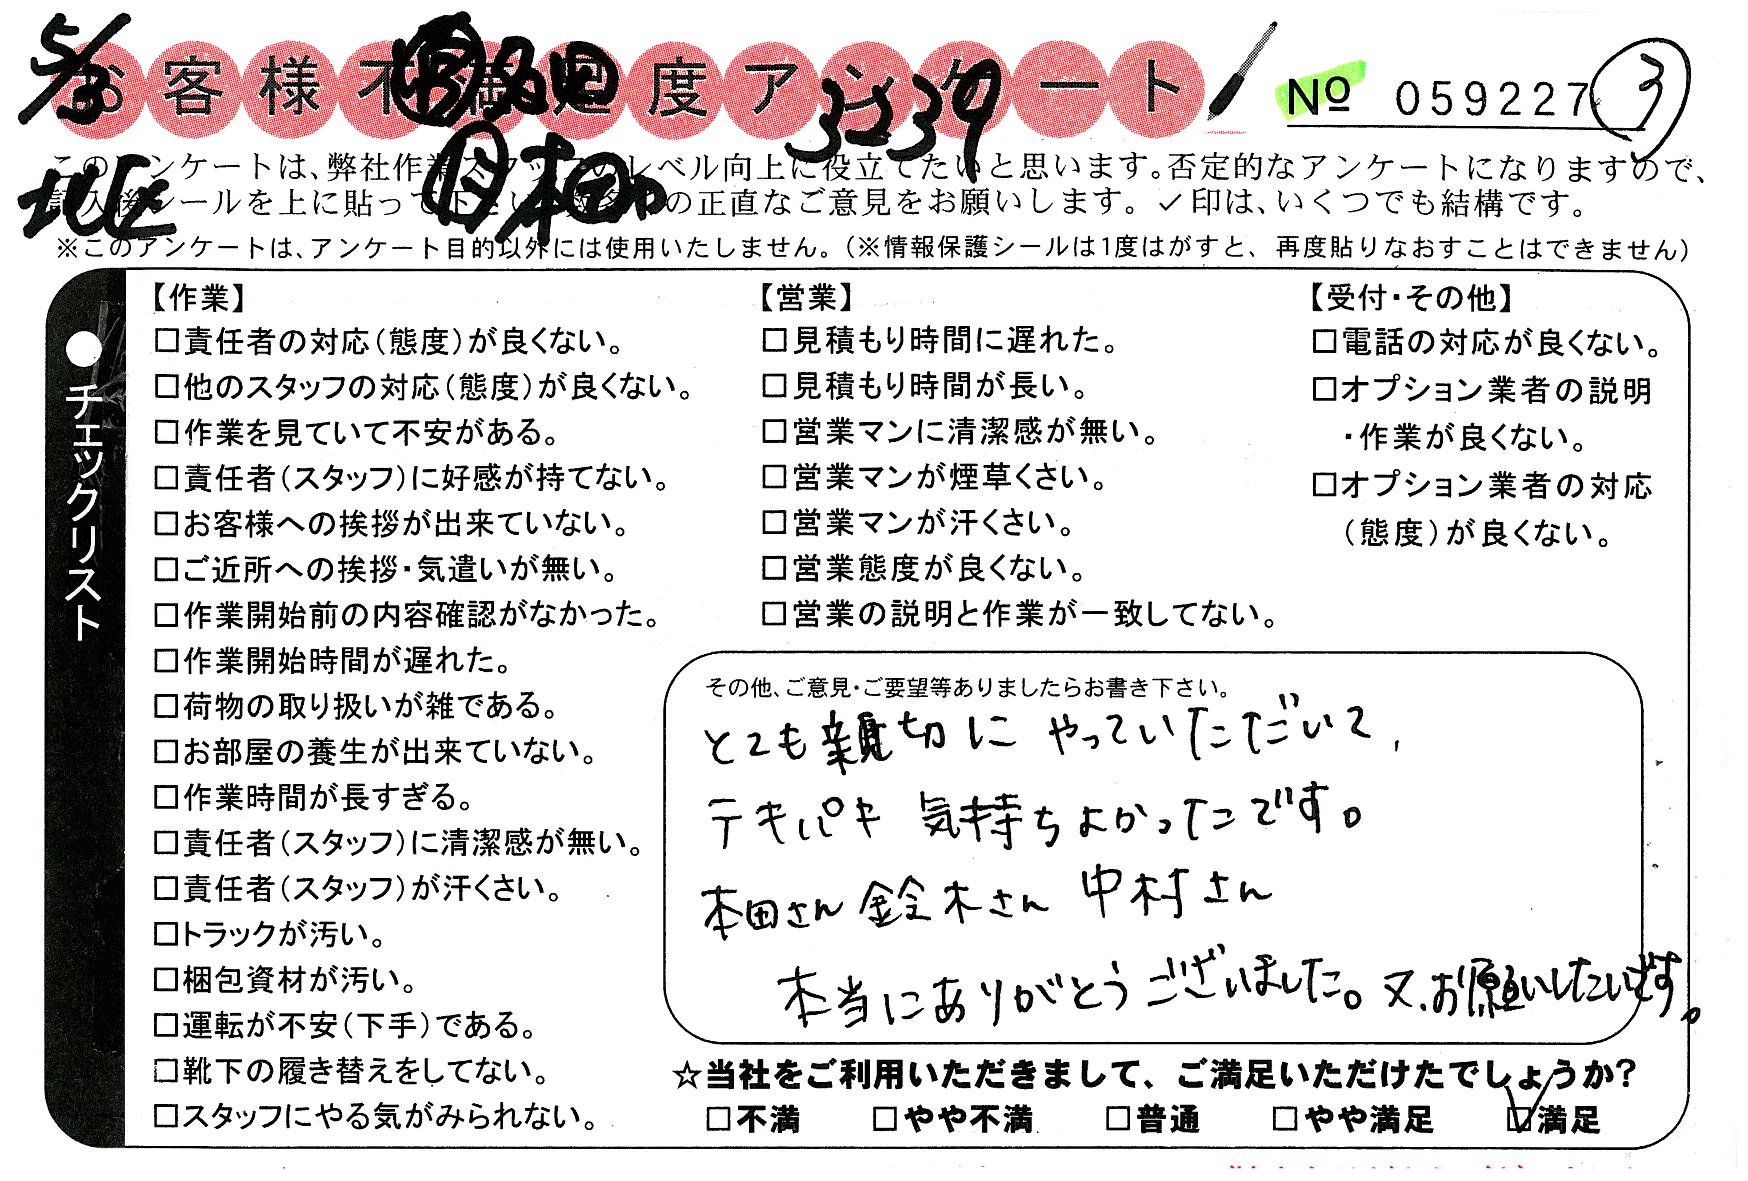 5/3
お客様不満足度アンケート
3239
No 059227 ③
地区
本田
このアンケートは、弊社作業スタッフのレベル向上に役立てたいと思います。否定的なアンケートになりますので、
記入後シールを上に貼って下さい。の正直なご意見をお願いします。✓印は、いくつでも結構です。
※このアンケートは、アンケート目的以外には使用いたしません。(※情報保護シールは1度はがすと、再度貼りなおすことはできません)
●チェックリスト
【作業】
□責任者の対応(態度)が良くない。
□他のスタッフの対応(態度)が良くない。
□作業を見ていて不安がある。
□責任者(スタッフ)に好感が持てない。
□お客様への挨拶が出来ていない。
□ご近所への挨拶・気遣いが無い。
□作業開始前の内容確認がなかった。
□作業開始時間が遅れた。
□荷物の取り扱いが雑である。
□お部屋の養生が出来ていない。
□作業時間が長すぎる。
□責任者(スタッフ)に清潔感が無い。
□責任者(スタッフ)が汗くさい。
□トラックが汚い。
□梱包資材が汚い。
□運転が不安(下手)である。
□靴下の履き替えをしてない。
□スタッフにやる気がみられない。
【営業】
□見積もり時間に遅れた。
□見積もり時間が長い。
□営業マンに清潔感が無い。
□営業マンが煙草くさい。
□営業マンが汗くさい。
□営業態度が良くない。
□営業の説明と作業が一致してない。
【受付・その他】
□電話の対応が良くない。
□オプション業者の説明
・作業が良くない。
□オプション業者の対応
(態度)が良くない。
その他、ご意見・ご要望等ありましたらお書き下さい。
とても親切に やっていただいて、
テキパキ 気持ちよかったです。
本田さん 鈴木さん 中村さん
本当にありがとうございました。又、お願いしたいです。
☆当社をご利用いただきまして、ご満足いただけたでしょうか?
□不満 □やや不満 □普通 □やや満足 ☑満足